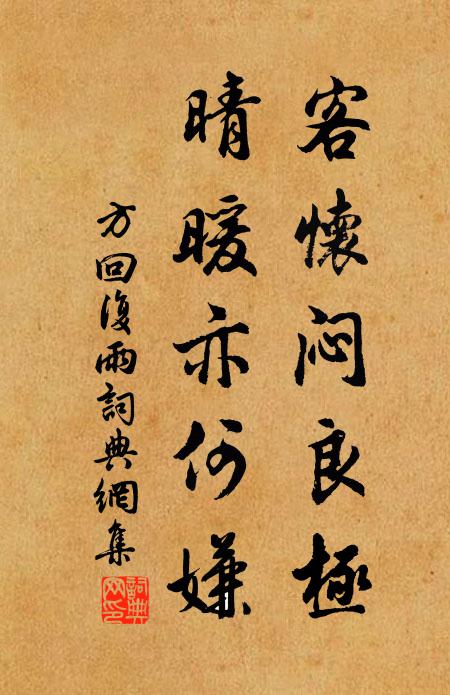 客懷悶良極
晴暖亦何嫌
方回復雨詞典網集
詞典網印